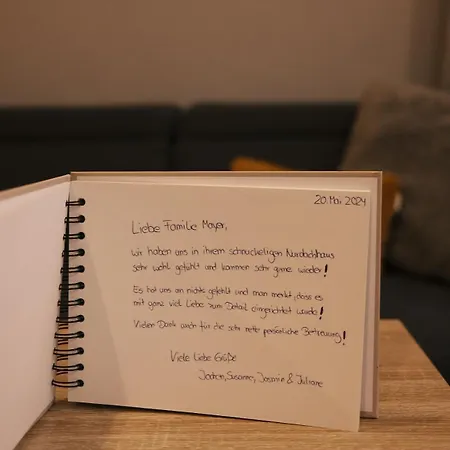 20. Mai 2024
Liebe Familie Mayer,
wir haben uns in ihrem schnuckeligen Nurdachhaus
sehr wohl gefühlt und kommen sehr gerne wieder!
Es hat uns an nichts gefehlt und man merkt, dass es
mit ganz viel Liebe zum Detail eingerichtet wurde!
Vielen Dank auch für die sehr nette persönliche Betreuung!
Viele Liebe Grüße
Jochen, Susanne, Jasmin & Juliane